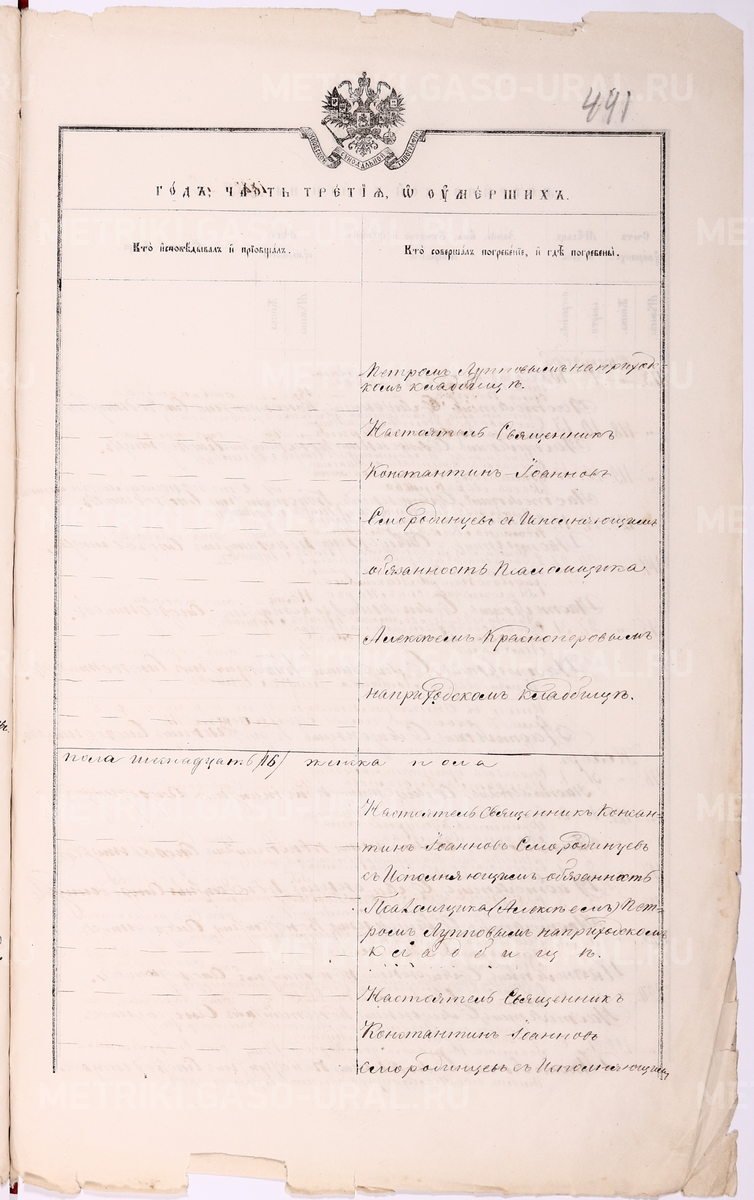 METRIKI.GASO-URAL.RU
491
МОСКОВСКОЙ СѴНОДАЛЬНОЙ ТИПОГРАФІИ
ГО́ДЪ, ЧАСТЬ ТРЕТІЯ, Ѡ ОУМЕРШИХЪ.
Кто̀ и҆сповѣдывалъ и҆ прїобщалъ.
Кто̀ соверша́лъ погребе́нїе, и҆ гдѣ̀ погребены̀.
Петромъ Лупповымъ на приход
комъ кладбищѣ.
Настоятель Священникъ
Константинъ Іоанновъ
Смородинцевъ съ Исполняющимъ
обязанность Псаломщика
Алексѣемъ Красноперовымъ
на приходскомъ кладбищѣ.
пола шеснадцать /16/ женска пола
Настоятель Священникъ Констан-
тинъ Іоанновъ Смородинцевъ
съ Исполняющимъ обязанность
Псаломщика (Алексѣемъ) Пет-
ромъ Лупповымъ на приходскомъ
кладбищѣ.
Настоятель Священникъ
Константинъ Іоанновъ
Смородинцевъ съ Исполняющимъ